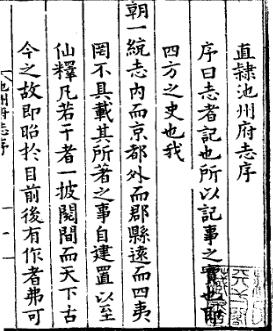 直隸池州府志序
序曰志者記也所以記事之實也即
四方之史也我
朝一統志內而京都外而郡縣遠而四夷
罔不具載其所著之事自建置以至
仙釋凡若干者一披閱間而天下古
今之故即昭於目前後有作者弗可
池州府志序